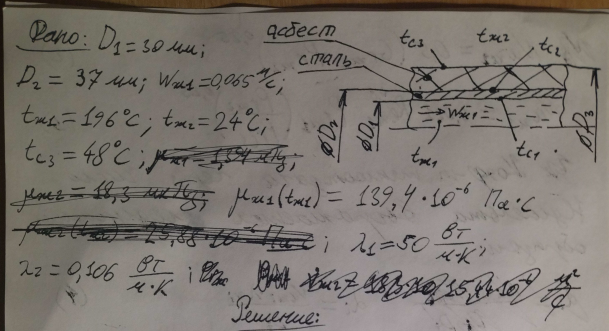 Дано: D₁ = 30 мм;
D₂ = 37 мм; Wж1 = 0,065 м/с;
tж1 = 196°C; tж2 = 24°C;
tс3 = 48°C;
μж1(tж1) = 139,4·10⁻⁶ Па·с
; λ₁ = 50 Вт/м·К;
λ₂ = 0,106 Вт/м·К;
Решение:
асбест
сталь
tс3
tж2
tс2
Wж1
øD₂
øD₁
øD₃
tж1
tс1